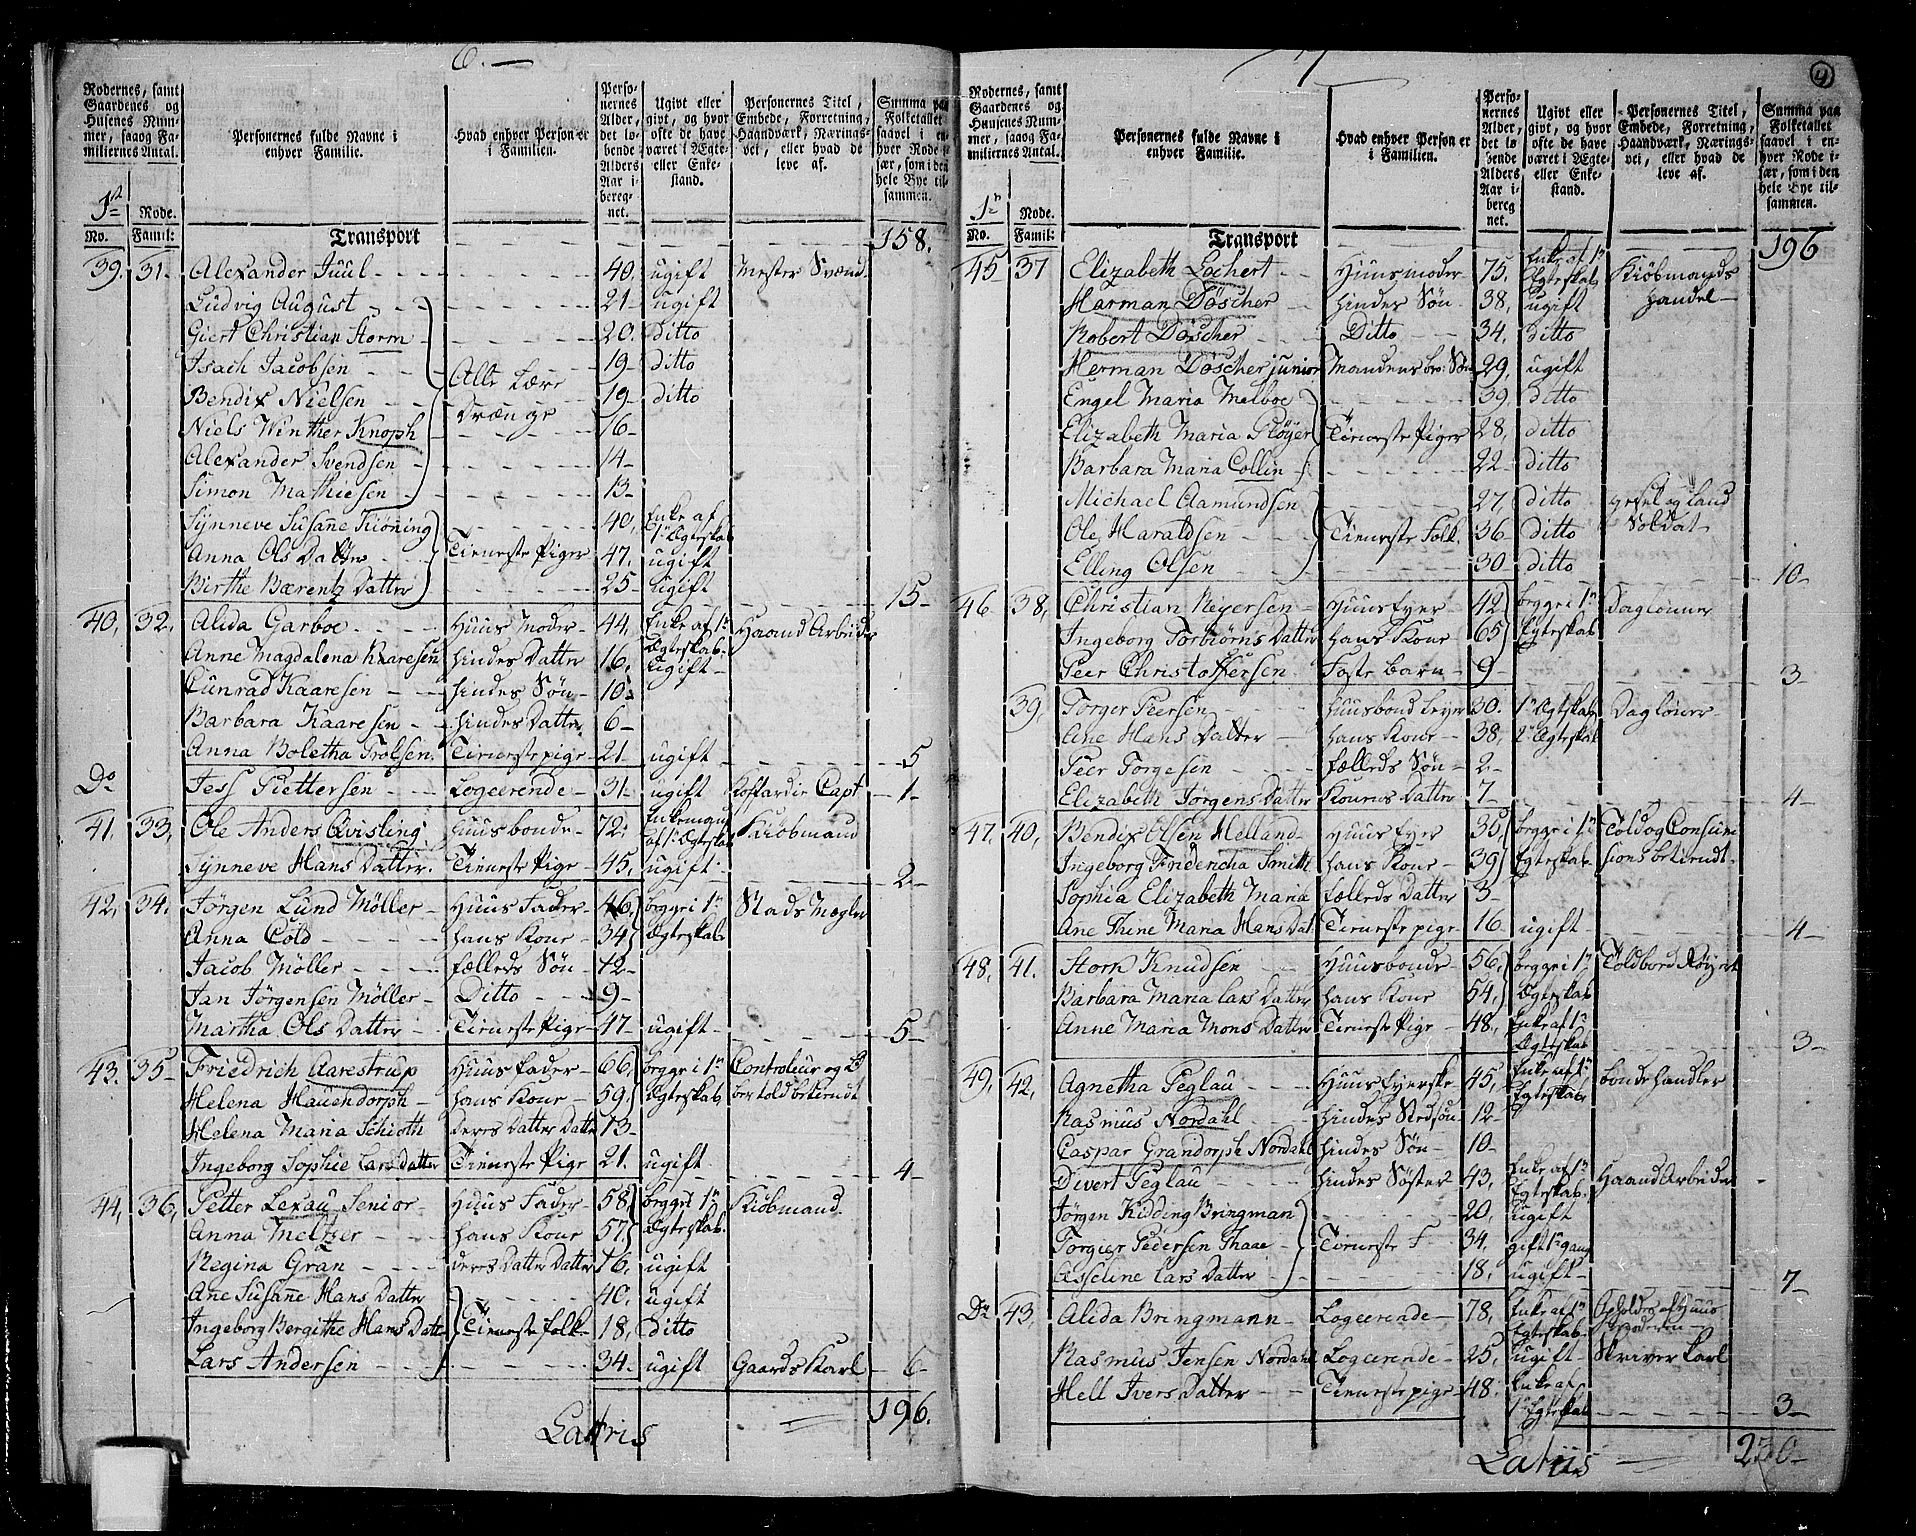 6.
Rodernes, samt Gaardenes og Husenes Nummer, saaog Familiernes Antal.
Personernes fulde Navne i enhver Familie.
Hvad enhver Person er i Familien.
Personernes Alder, det løbende Alders Aar iberegnet.
Ugivt eller givt, og hvor ofte de have været i Ægte- eller Enkestand.
Personernes Titel, Embede, Forretning, Haandværk, Næringsvei, eller hvad de leve af.
Summa paa Folketallet saavel i enhver Rode især, som i den hele Bye tilsammen.
1te Rode.
No. Famil:
Transport 158.
39. 31. Alexander Juul 40. ugift Mester Svend
Ludvig August 21 ugift
Giert Christian Storm 20. ditto
Isach Jacobsen 19 ditto
Alle Lære
Bendix Nielsen 19 ditto
Drænge
Niels Winther Knoph 16
Alexander Svendsen 14
Simon Mathiesen 13
Synneve Susañe Kiöning 40. Enke af 1te Ægteskab
Anna Ols Datter Tieneste Piger 47. ugift
Birthe Bærentz Datter 25 ugift 15
40. 32. Alida Garboe Huus Moder 44. Enke af 1te Ægteskab. Haand Arbeider
Anne Magdalena Kaaresen hindes Datter 16. ugift
Cunrad Kaaresen hindes Søn 10
Barbara Kaaresen hindes Datter 6
Anna Boletha Trolsen. Tieneste pige 21 ugift 5
Do Jess Piettersen Logeerende 31 ugift Koffardie Capt 1
41. 33. Ole Anders Qvisling Huusbonde 72. Enkemand af 1te Ægteskab Kiöbmand
Synneve Hans Datter. Tieneste Pige 45. ugift 2
42. 34. Jörgen Lund Möller Huus Fader 46. begge i 1te Stads Mægler
Anna Cold hans Kone 34 Ægteskab
Jacob Möller fælleds Søn 12
Jan Jörgensen Möller Ditto 9
Martha Ols Datter Tieneste Pige 47 ugift 5
43. 35 Friedrich Aarestrup Huus Fader 66. begge i 1te Controleur og
Helena Hauendorph hans Kone 59. Ægteskab. told betiendt
Helena Maria Schioth deres Datter Datter 13
Ingeborg Sophie Lars Datter Tieneste Pige 21. ugift 4
44. 36. Petter Lexau Senior Huus Fader 58. begge i 1te Kiöbmand
Anna Meltzer hans Kone 57. Ægteskab.
Regina Gran deres Datter Datter 16. ugift
Ane Susañe Hans Datter 40. ugift
Ingeborg Bergithe Hans Datt Tieneste folk 18. ditto
Lars Andersen 34. ugift Gaards Karl 6
Latris 196.
7
4
Rodernes, samt Gaardenes og Husenes Nummer, saaog Familiernes Antal.
Personernes fulde Navne i enhver Familie.
Hvad enhver Person er i Familien.
Personernes Alder, det løbende Alders Aar iberegnet.
Ugivt eller givt, og hvor ofte de have været i Ægte- eller Enkestand.
Personernes Titel, Embede, Forretning, Haandværk, Næringsvei, eller hvad de leve af.
Summa paa Folketallet saavel i enhver Rode især, som i den hele Bye tilsammen.
1te Rode.
No. Famil:
Transport 196
45 37 Elizabeth Lochert Huusmoder 75. Enke af 1te Ægteskab Kiöbmands
Harman Döscher hindes Søn 38. ugift Handel
Robert Döscher Ditto 34. ditto
Herman Döscher junior Mandens bro: Søn 29. ugift
Engel Maria Melboe 39. ditto
Elizabeth Maria Pløyer Tieneste Piger 28. ditto
Barbara Maria Collin 22 ditto
Michael Aamundsen 27. ditto gesel og Land
Ole Haraldsen Tieneste Folk. 36 ditto Soldat
Elling Olsen 30 ditto 10
46. 38. Christian Reyersen Huus Eyer 42 begge i 1te Dagløner
Ingeborg Torbiörns Datter hans Kone 65 Egteskab
Peer Christoffersen Foster barn 9 3
39. Torger Peersen Huusbond Leyer 30. 1te Ægteskab Dagløner
Ane Hans Datter hans Kone 38. 2 Ægteskab
Peer Torgesen fælleds Søn 2
Elizabeth Jörgens Datter Kones Datter 7 4
47. 40. Bendix Olsen Helland Huus Eyer 35. begge i 1te Told og Consum
Ingeborg Fridericha Smith hans Kone 39 Egteskab sions betiendt
Sophia Elizabeth Maria fælleds Datter 3
Ane Thine Maria Hans Dat Tieneste pige 16 ugift 4
48. 41. Stork Knudsen Huusbonde 56. begge i 1te
Barbara Maria Lars Datter hans Kone 54. Ægteskab
Anne Maria Mons Datter Tieneste Pige 48. Enke af 1te Ægteskab 3
49. 42. Agnetha Peglau Huus Eyerske 45. Enke af 1te Egteskab bonde handler
Rasmus Nordahl hindes Stedsøn 12
Caspar Grandorph Nordahl hindes Søn 10
Divert Peglau hindes Søster 43. Enke af 1te Egteskab. Haand Arbeider
Jörgen Kidding Bringman 20. ugift
Torgier Pedersen Thaae Tieneste F 34. gift 1te gang
Asseline Lars Datter 18. ugift 7
Do 43. Alida Bringmann Logeerende 78. Enke af 1te Egteskab. Opholdes af Huus moderen
Rasmus Jensen Nordahl Logeerende 25. ugift Skriver Karl
Hell Ivers Datter Tieneste pige 48. Enke af 1te Egteskab 3
Latus 230